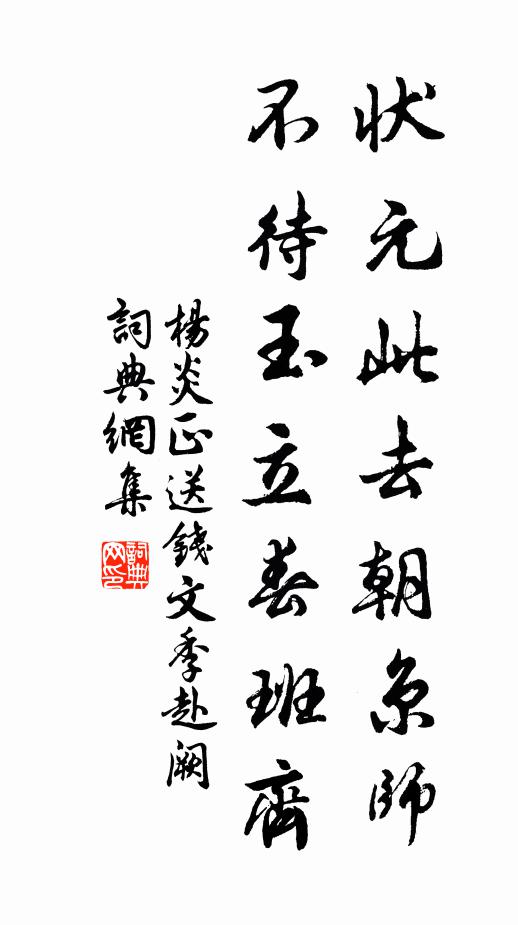 状元此去朝京师
不待玉立春班齊
楊炎正送錢文季赴阙
詞典網集
詞典網印